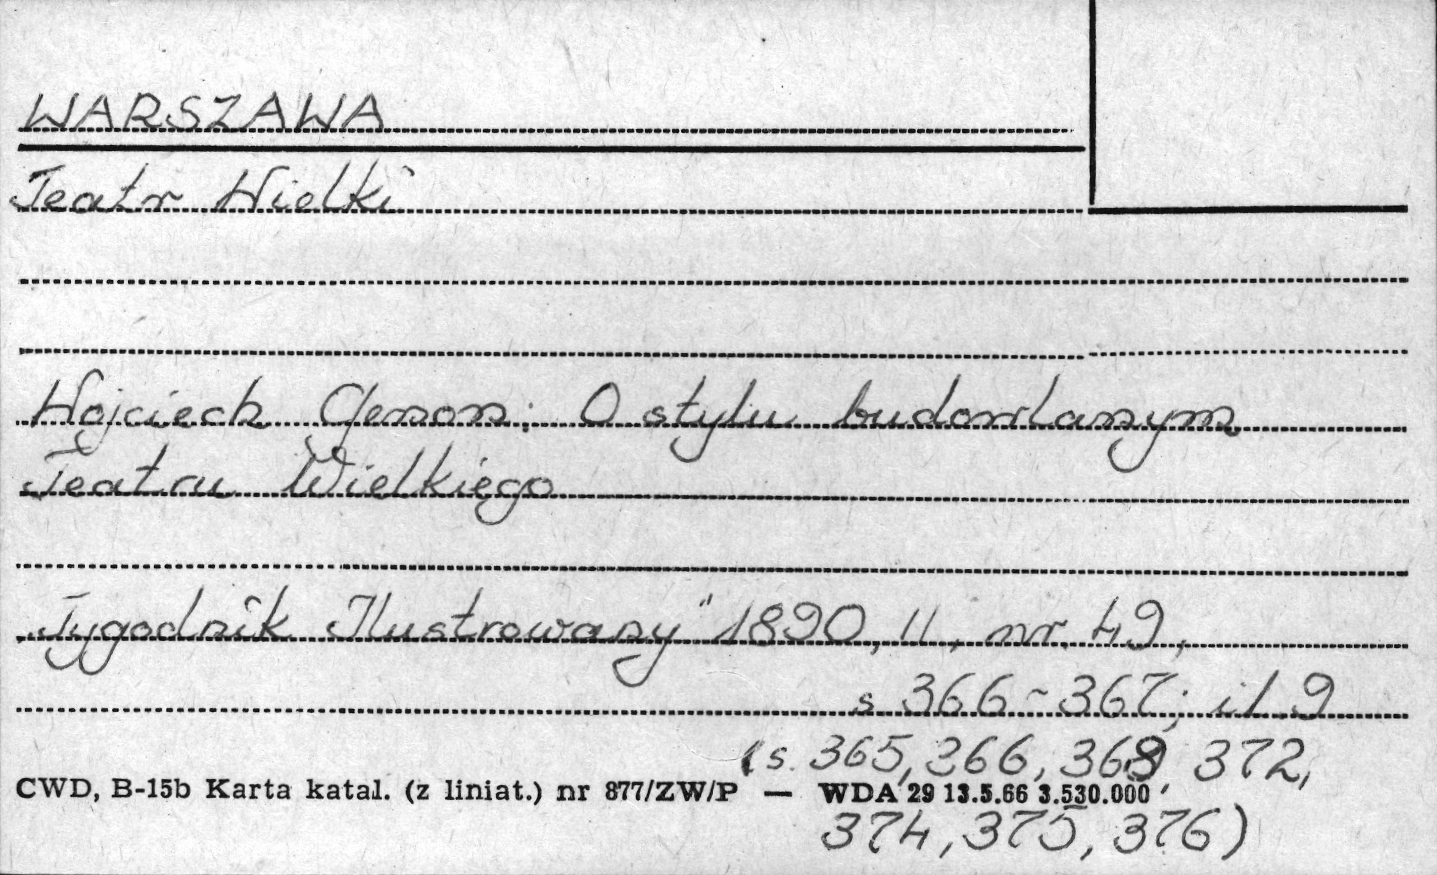 WARSZAWA
Teatr Wielki
Wojciech Gerson: O stylu budowlanym
Teatru Wielkiego
„Tygodnik Ilustrowany" 1890, II, nr. 49,
s 366-367; il. 9
(s. 365, 366, 369, 372,
CWD, B-15b Karta katal. (z liniat.) nr 877/ZW/P — WDA 29 13.5.66 3.530.000
374, 375, 376)